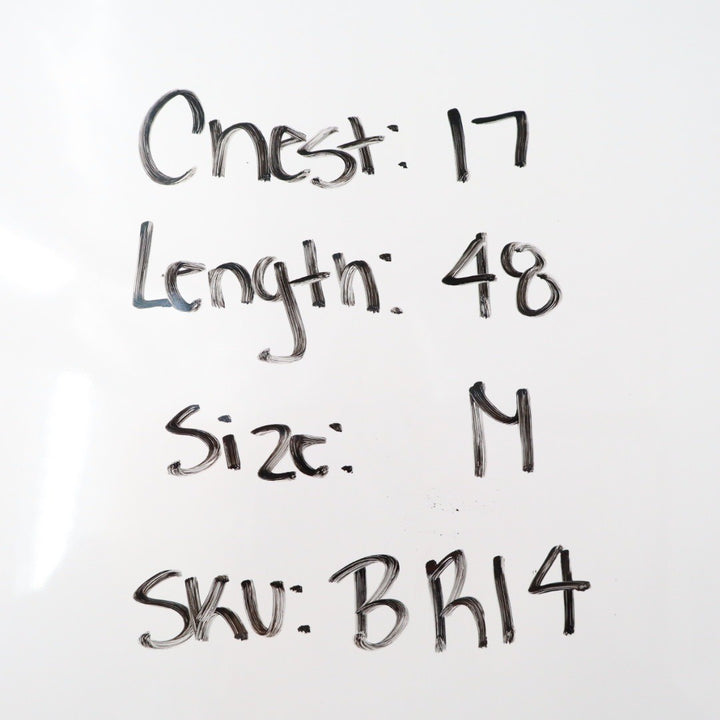 Chest: 17
Length: 48
Size: M
SKU: BR14